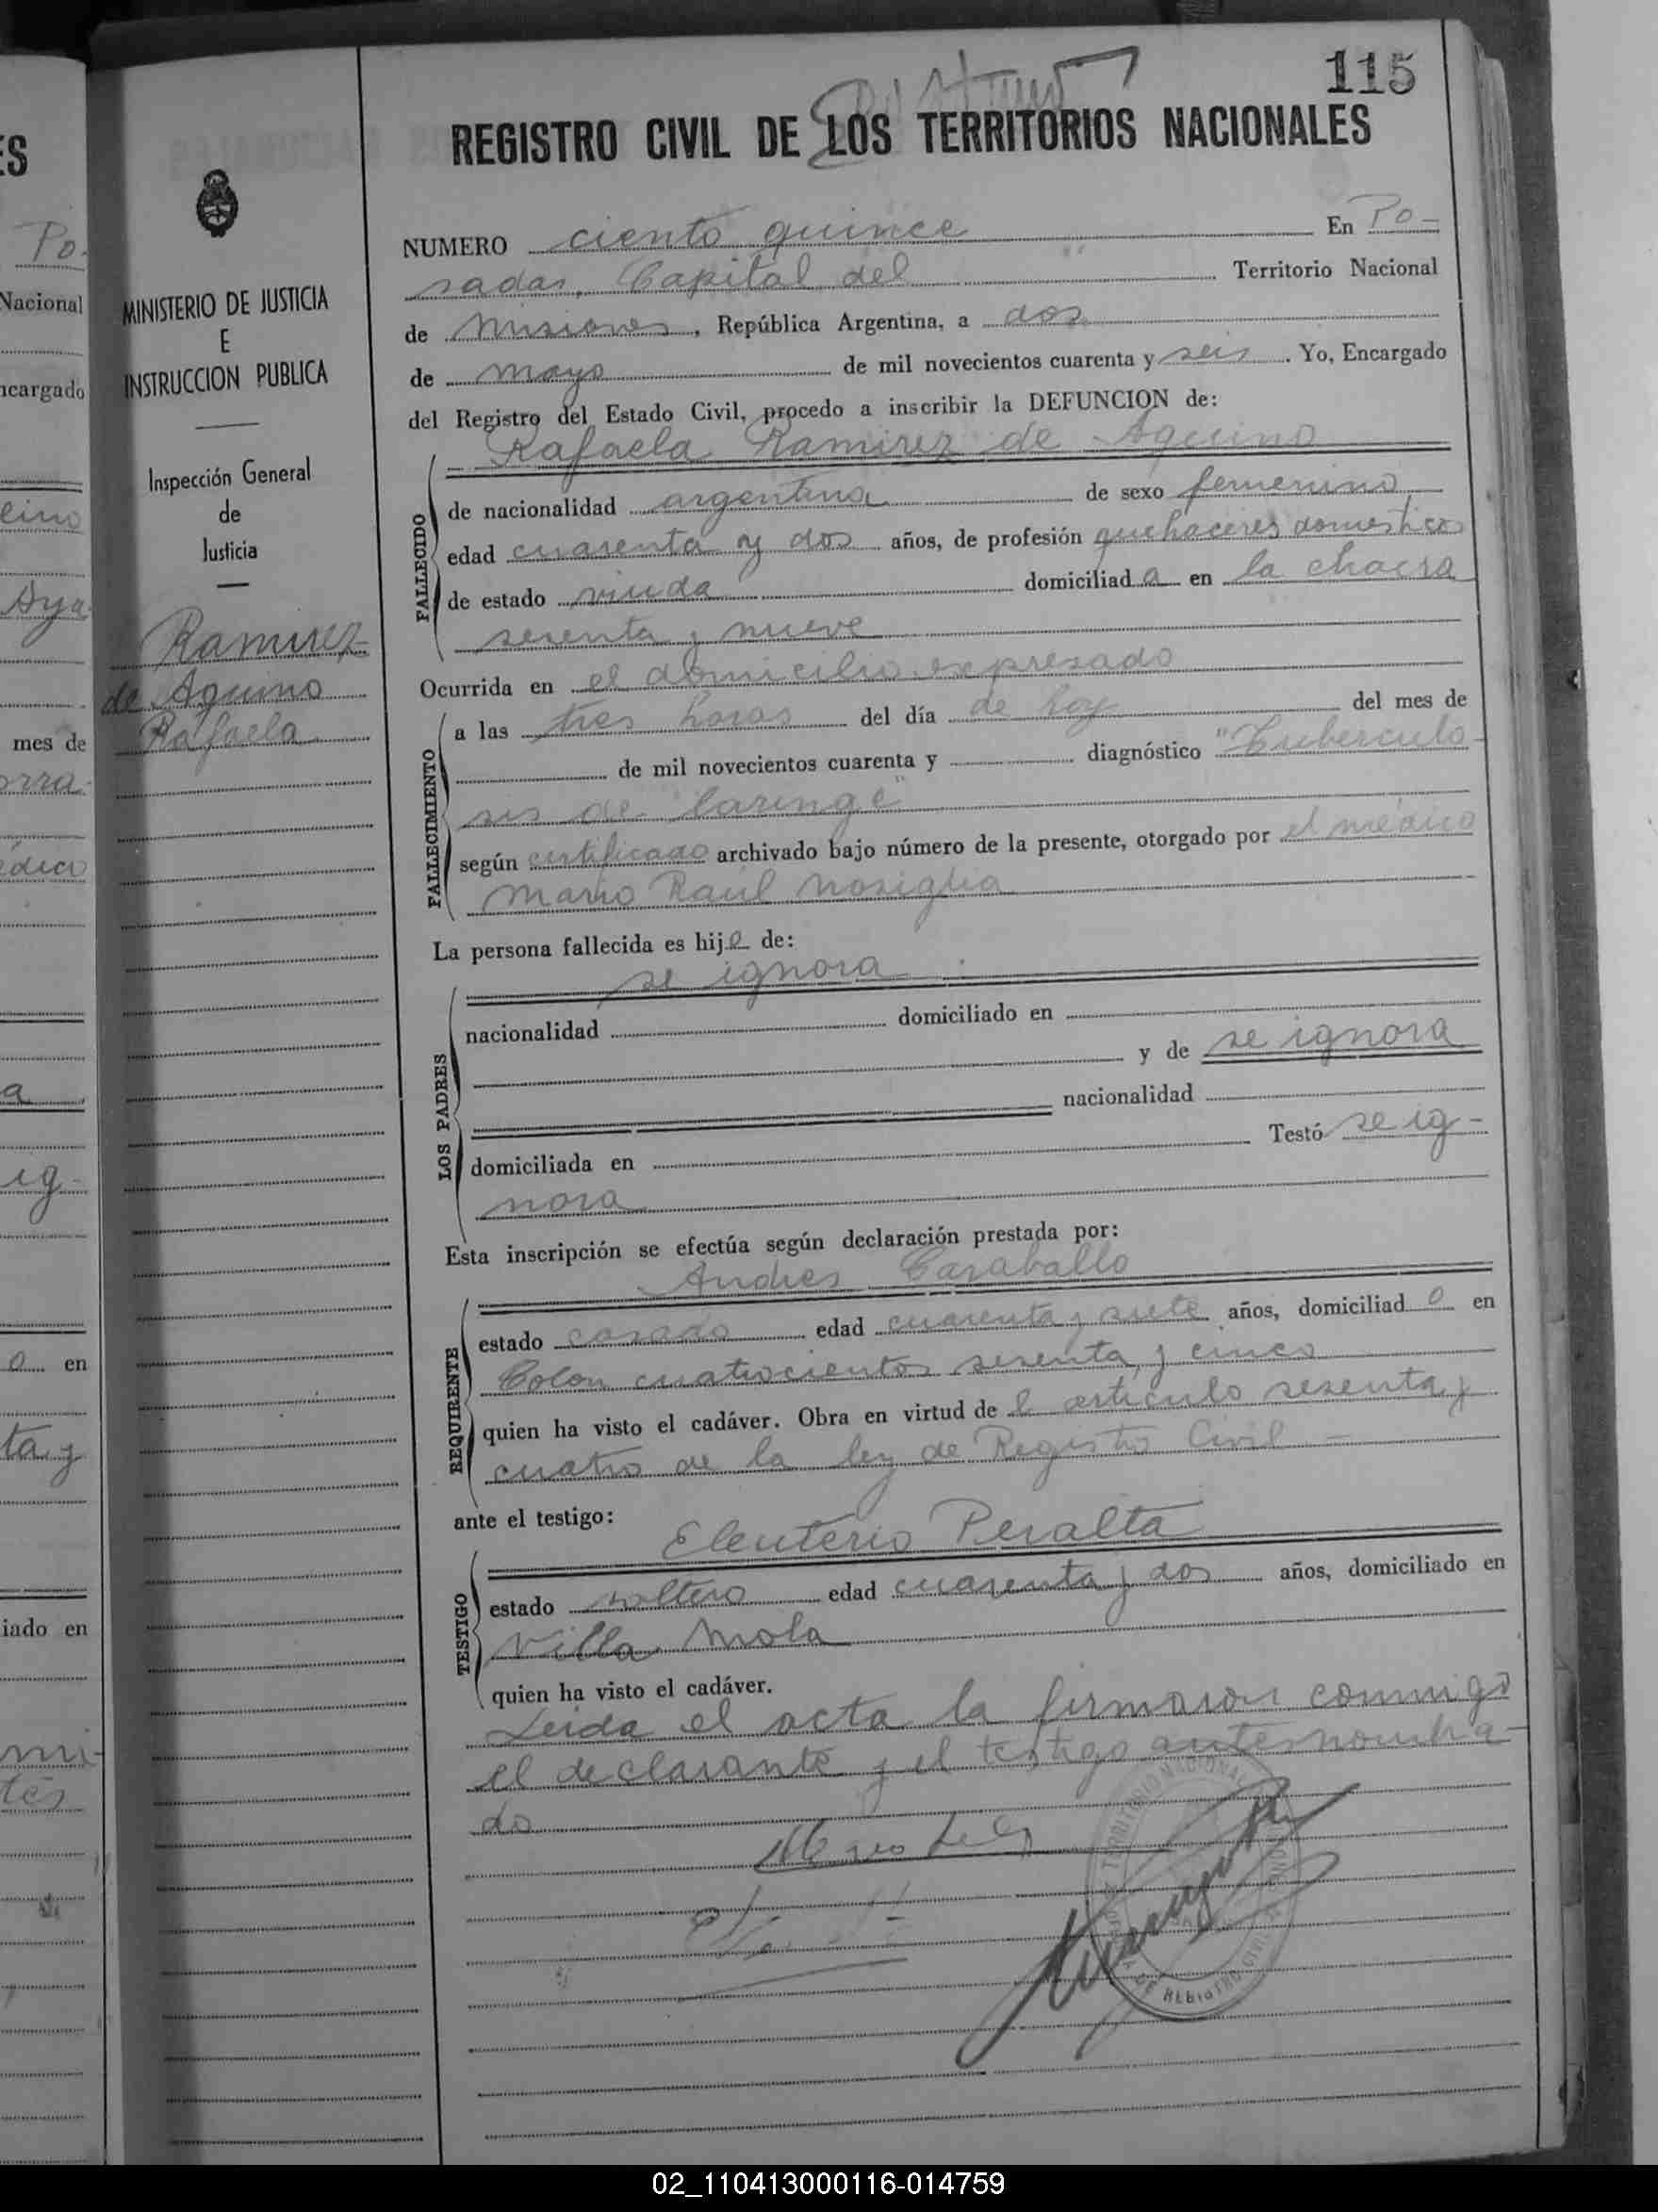 115
REGISTRO CIVIL DE LOS TERRITORIOS NACIONALES
MINISTERIO DE JUSTICIA
E
INSTRUCCION PUBLICA
Inspección General
de
Justicia
Ramirez
de Aquino
Rafaela
NUMERO ciento quince En Po-
sadas, Capital del Territorio Nacional
de Misiones, República Argentina, a dos
de mayo de mil novecientos cuarenta y seis. Yo, Encargado
del Registro del Estado Civil, procedo a inscribir la DEFUNCION de:
Rafaela Ramirez de Aquino
FALLECIDO
de nacionalidad argentina de sexo femenino,
edad cuarenta y dos años, de profesión quehaceres domesticos
de estado viuda domiciliada en la chacra
sesenta y nueve
Ocurrida en el domicilio expresado
FALLECIMIENTO
a las tres horas del día de hoy del mes de
de mil novecientos cuarenta y diagnóstico "Tuberculo-
sis de laringe"
según certificado archivado bajo número de la presente, otorgado por el médico
Mario Raul Nosiglia
La persona fallecida es hija de:
se ignora
LOS PADRES
nacionalidad domiciliado en
y de se ignora
nacionalidad
domiciliada en Testó se ig-
nora
Esta inscripción se efectúa según declaración prestada por:
Andres Caraballo
REQUIRENTE
estado casado edad cuarenta y siete años, domiciliado en
Colon cuatrocientos sesenta y cinco
quien ha visto el cadáver. Obra en virtud del articulo sesenta y
cuatro de la ley de Registro Civil -
ante el testigo:
Eleuterio Peralta
TESTIGO
estado soltero edad cuarenta y dos años, domiciliado en
Villa Mola
quien ha visto el cadáver.
Leida el acta la firmaron conmigo
el declarante y el testigo antesnombra-
do
02_110413000116-014759